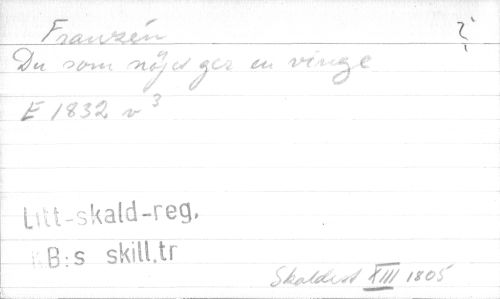 Franzén ?
Du som nöjet ger en vinge
E 1832 v 3
Litt-skald-reg.
KB:s skill.tr
Skaldest XIII 1805